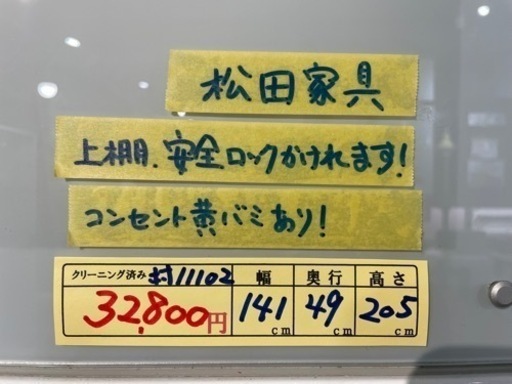 松田家具
上棚.安全ロックかけれます!
コンセント黄バミあり!
クリーニング済み 村11102 幅 奥行 高さ
32,800円 141cm 49cm 205cm